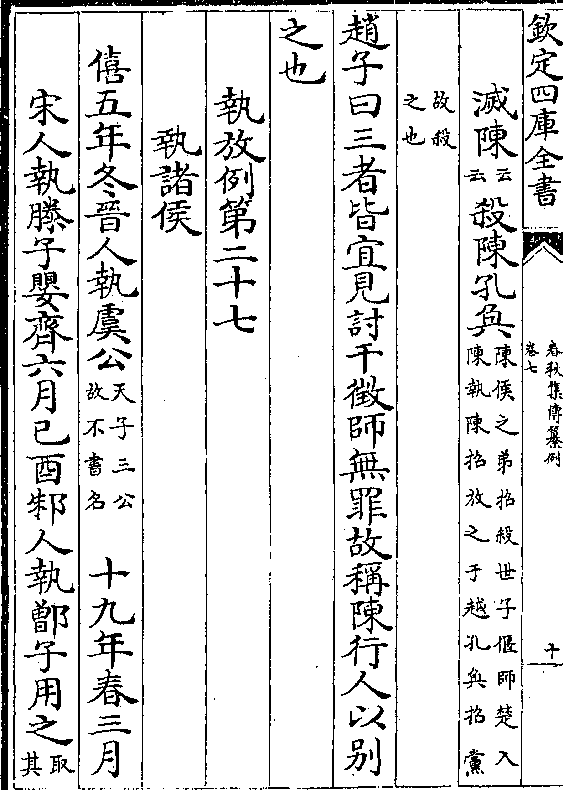 欽定四庫全書
春秋集傳纂例
卷七
十
滅陳云云殺陳孔奐陳侯之弟招殺世子偃師楚入陳執陳招放之于越孔奐招黨
故殺之也
趙子曰三者皆宜見討干徵師無罪故稱陳行人以別
之也
執放例第二十七
執諸侯
僖五年冬晉人執虞公天子三公故不書名 十九年春三月
宋人執滕子嬰齊六月己酉邾人執鄫子用之取其